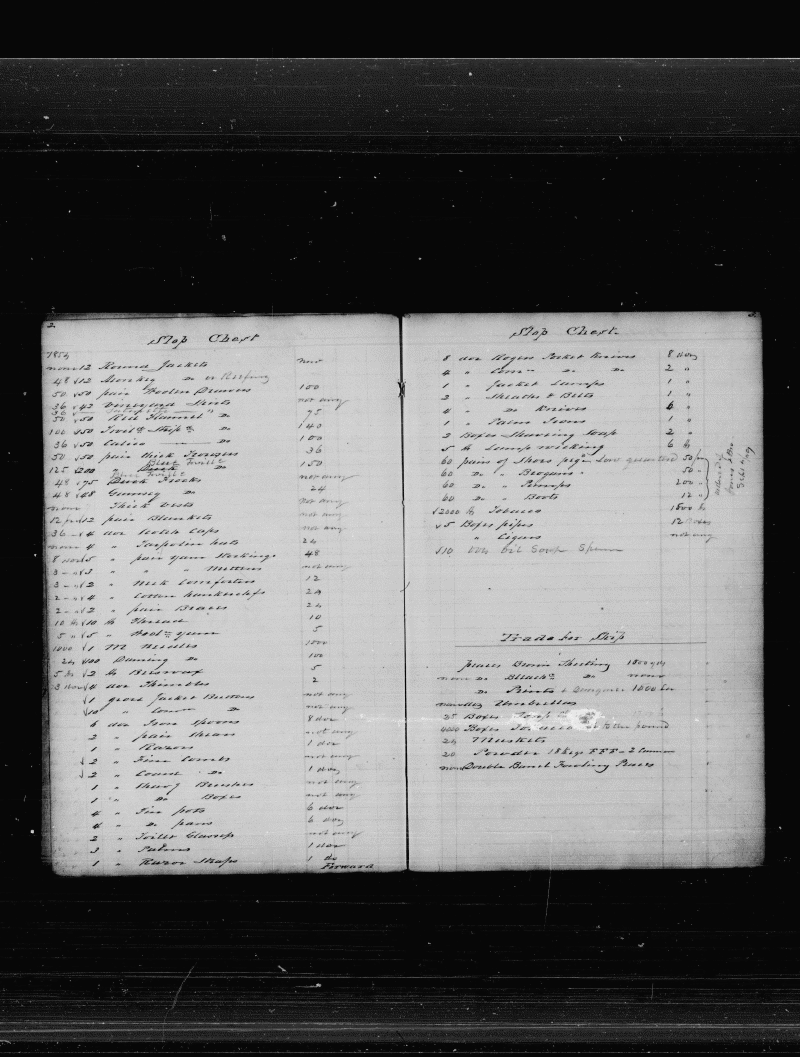 2
Slop Chest
1854
none 12 Round Jackets none
48 √12 Monkey Do or Reefing
50 √50 pair Woolen Drawers 100
36 √42 Vineyard Shirts not any
50 √50 Red Flannel " Do 75
100 √50 Twilld Stripd Do 140
36 √50 Calico Do 100
50 √50 pair thick Trowsers 36
Blue Twill
125 √200 Duck Do 150
48 √75 Duck Frocks not any
48 √48 Gurnsey Do 24
none Thick Vests not any
12 prs √12 pair Blankets not any
36 √4 doz Scotch Caps not any
none 4 " Tarpolin hats 24
8 doz √5 " pair yarn Stockings 48
3 √3 " " " Mittens not any
3 √2 " Neck Comforters 12
2 √4 " Cotton hankerchefs 24
2 √2 " pair Braces 24
10 lbs √10 lb Thread 10
5 " √5 " Wooln yarn 5
1000 √1 M Needles 1000
24 √100 Darning Do 100
5 lbs √2 lb Beeswax 5
3 doz √4 doz Thimbles 2
√1 gross Jacket Buttons not any
√10 " Comn Do not any
6 doz Iron Spoons 8 doz
2 " pair Shears not any
1 " Razors 1 doz
√2 " Fine Combs not any
√2 " Coarse Do 1 doz
1 " Shavg Brushes not any
1 " Do Boxes not any
4 " Tin pots 6 doz
4 " Do pans 6 doz
2 " Toilet Glasses not any
3 " Palms 1 doz
1 " Razor Straps 1 do
Forward
Slop Chest.
8 doz Rogers Pocket Knives 8 doz
4 " Comn Do Do 2 "
1 " Jacket Lamps 1 "
2 " Sheaths & Belts 1 "
4 " Do Knives 6 "
1 " Palm Irons 1 "
2 Boxes Shaving Soap 2 "
5 lb Lamp wicking 6 lb
60 pairs of Shoes pegd Low quartered 50 prs
60 Do " Brogans " 50 "
60 Do " Pumps 200 "
60 Do " Boots 12 "
√2000 lb Tobacco 1500 lb
√5 Boxes pipes 12 Boxes
" Cigars not any
√10 Soap
Trade for Ship
pieces Brown Sheeting 1500 yds
none Do Black Do none
Do Prints
Umbrellas
25 Boxes Soap
4000 Boxes to the pound
24 Muskets
20 Powder 18 kegs FFF - 2 Cannon
none Double Barrel Fowling Pieces